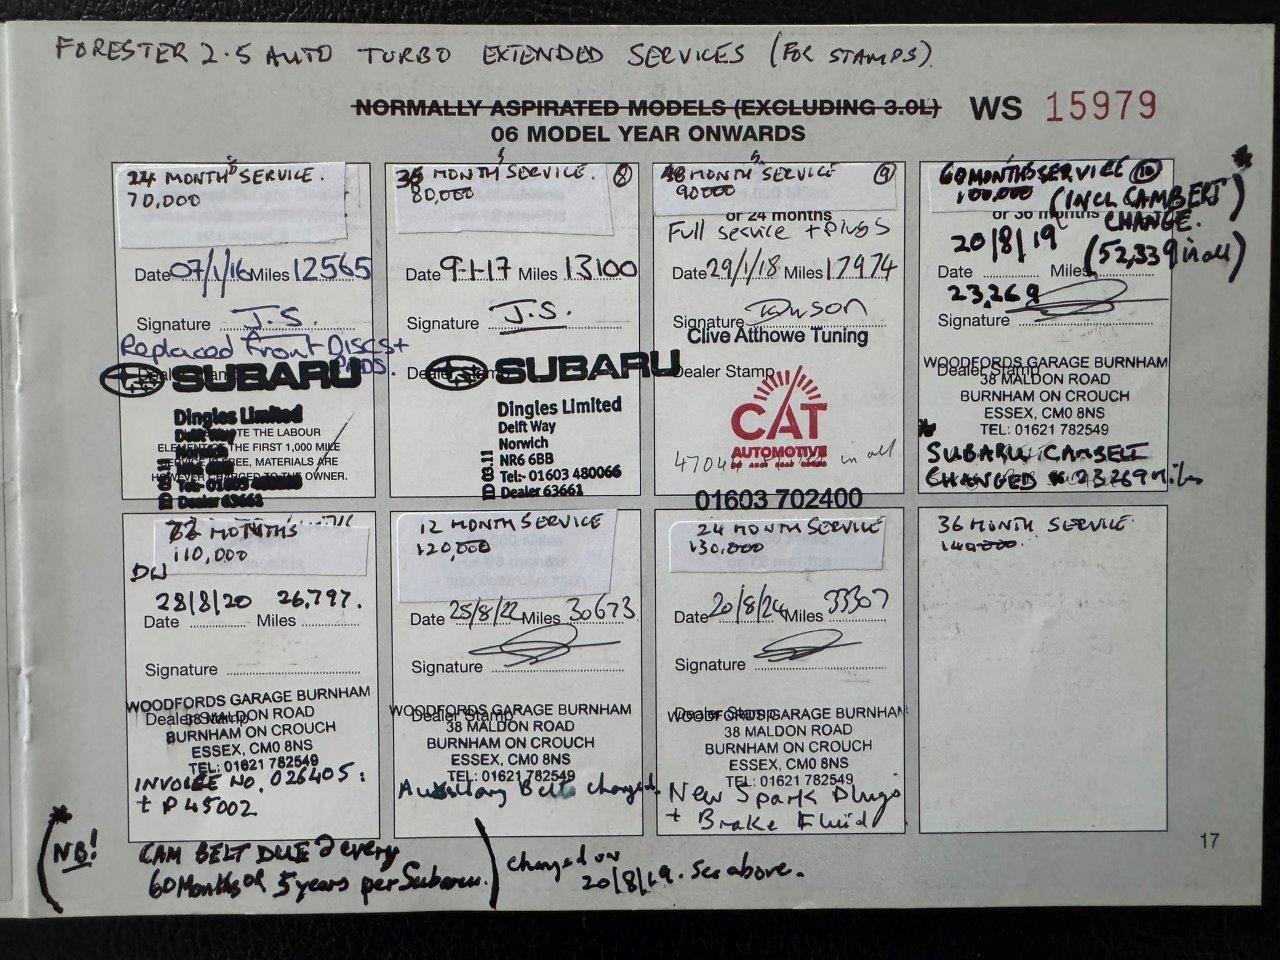 FORESTER 2.5 AUTO TURBO EXTENDED SERVICES (FOR STAMPS).
NORMALLY ASPIRATED MODELS (EXCLUDING 3.0L) WS 15979
06 MODEL YEAR ONWARDS
24 MONTHS SERVICE.
70,000
Date 07/1/16 Miles 12565
Signature J.S.
Replaced Front Discs +
PADS.
SUBARU
Dingles Limited
Delft Way
Norwich
TE THE LABOUR
THE FIRST 1,000 MILE
FREE, MATERIALS ARE
OWNER.
Dealer 63661
36 MONTH SERVICE. 8
80,000
Date 9-1-17 Miles 13100
Signature J.S.
SUBARU
Dingles Limited
Delft Way
Norwich
NR6 6BB
Tel:- 01603 480066
Dealer 63661
48 MONTH SERVICE 9
90000
or 24 months
Full service + plugs
Date 29/1/18 Miles 17974
Signature
Clive Atthowe Tuning
Dealer Stamp
CAT
AUTOMOTIVE
in all
01603 702400
60 MONTHS SERVICE 10
100,000 (INCL CAMBELT
or 36 months CHANGE.
20/8/19 (52,339 in all)
Date Miles
23,269
Signature
WOODFORDS GARAGE BURNHAM
Dealer Stamp
38 MALDON ROAD
BURNHAM ON CROUCH
ESSEX, CM0 8NS
TEL: 01621 782549
SUBARU CAMBELT
CHANGED 23269 Miles
MONTHS
110,000
28/8/20 26,797.
Date Miles
Signature
WOODFORDS GARAGE BURNHAM
Dealer Stamp
38 MALDON ROAD
BURNHAM ON CROUCH
ESSEX, CM0 8NS
TEL: 01621 782549
INVOICE NO. 026405:
+ P45002
12 MONTH SERVICE
120,000
Date 25/8/22 Miles 30673
Signature
WOODFORDS GARAGE BURNHAM
Dealer Stamp
38 MALDON ROAD
BURNHAM ON CROUCH
ESSEX, CM0 8NS
TEL: 01621 782549
Auxillary Belts changed.
24 MONTH SERVICE
130,000
Date 20/8/24 Miles 33307
Signature
WOODFORDS GARAGE BURNHAM
Dealer Stamp
38 MALDON ROAD
BURNHAM ON CROUCH
ESSEX, CM0 8NS
TEL: 01621 782549
New Spark Plugs
+ Brake Fluid
36 MONTH SERVICE.
140000
17
(NB! CAM BELT DUE every
60 Months or 5 years per Subaru.)
changed on
20/8/19. See above.